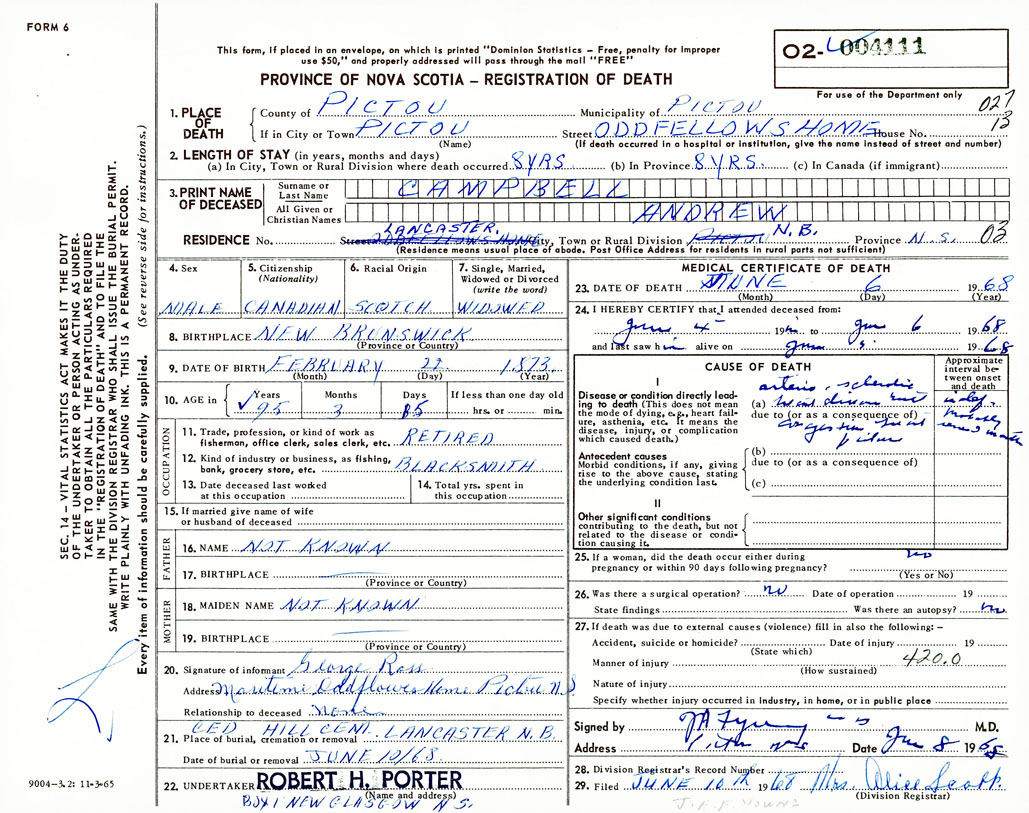 FORM 6
This form, if placed in an envelope, on which is printed "Dominion Statistics – Free, penalty for improper
use $50," and properly addressed will pass through the mail "FREE"
PROVINCE OF NOVA SCOTIA – REGISTRATION OF DEATH
02- 004111
For use of the Department only
027
13
1. PLACE OF DEATH
County of PICTOU Municipality of PICTOU
If in City or Town PICTOU Street ODDFELLOWS HOME House No.
(Name) (If death occurred in a hospital or institution, give the name instead of street and number)
2. LENGTH OF STAY (in years, months and days)
(a) In City, Town or Rural Division where death occurred 8 YRS (b) In Province 8 YRS. (c) In Canada (if immigrant)
3. PRINT NAME OF DECEASED
Surname or Last Name CAMPBELL
All Given or Christian Names ANDREW
LANCASTER. N.B.
RESIDENCE No. Street ODDFELLOWS HOME City, Town or Rural Division PICTOU Province N.S. 03
(Residence means usual place of abode. Post Office Address for residents in rural parts not sufficient)
4. Sex
MALE
5. Citizenship
(Nationality)
CANADIAN
6. Racial Origin
SCOTCH
7. Single, Married,
Widowed or Divorced
(write the word)
WIDOWED
8. BIRTHPLACE NEW BRUNSWICK
(Province or Country)
9. DATE OF BIRTH FEBRUARY 22 1873
(Month) (Day) (Year)
10. AGE in
Years Months Days If less than one day old
95 3 15 hrs. or min.
OCCUPATION
11. Trade, profession, or kind of work as
fisherman, office clerk, sales clerk, etc. RETIRED
12. Kind of industry or business, as fishing,
bank, grocery store, etc. BLACKSMITH
13. Date deceased last worked
at this occupation
14. Total yrs. spent in
this occupation
15. If married give name of wife
or husband of deceased
FATHER
16. NAME NOT KNOWN
17. BIRTHPLACE
(Province or Country)
MOTHER
18. MAIDEN NAME NOT KNOWN
19. BIRTHPLACE
(Province or Country)
20. Signature of informant George Ross
Address Maritime Oddflowes Home Pictou N S
Relationship to deceased None
CED HILL CEM. LANCASTER N.B.
21. Place of burial, cremation or removal
Date of burial or removal JUNE 10/68
22. UNDERTAKER ROBERT H. PORTER
(Name and address)
BOX 1 NEW GLASGOW N.S.
MEDICAL CERTIFICATE OF DEATH
23. DATE OF DEATH JUNE 6 1968
(Month) (Day) (Year)
24. I HEREBY CERTIFY that I attended deceased from:
June 4 19 to June 6 1968
and last saw him alive on June 1968
CAUSE OF DEATH
Approximate
interval be-
tween onset
and death
I
Disease or condition directly lead-
ing to death (This does not mean
the mode of dying, e.g., heart fail-
ure, asthenia, etc. It means the
disease, injury, or complication
which caused death.)
(a) arterio sclerotic
heart disease
due to (or as a consequence of)
congestive heart
failure
Antecedent causes
Morbid conditions, if any, giving
rise to the above cause, stating
the underlying condition last.
(b)
due to (or as a consequence of)
(c)
II
Other significant conditions
contributing to the death, but not
related to the disease or condi-
tion causing it.
25. If a woman, did the death occur either during
pregnancy or within 90 days following pregnancy? no
(Yes or No)
26. Was there a surgical operation? no Date of operation 19
State findings Was there an autopsy? no
27. If death was due to external causes (violence) fill in also the following: –
Accident, suicide or homicide? Date of injury 19
(State which)
Manner of injury 420.0
(How sustained)
Nature of injury
Specify whether injury occurred in industry, in home, or in public place
Signed by M.D.
Address Pictou N.S. Date June 8 1968
28. Division Registrar's Record Number
29. Filed JUNE 10th 1968 Mrs. Alice Scott.
(Division Registrar)
9004-3.2: 11-3-65
SEC. 14 – VITAL STATISTICS ACT MAKES IT THE DUTY
OF THE UNDERTAKER OR PERSON ACTING AS UNDER-
TAKER TO OBTAIN ALL THE PARTICULARS REQUIRED
IN THE "REGISTRATION OF DEATH" AND TO FILE THE
SAME WITH THE DIVISION REGISTRAR WHO SHALL ISSUE THE BURIAL PERMIT.
WRITE PLAINLY WITH UNFADING INK. THIS IS A PERMANENT RECORD.
Every item of information should be carefully supplied. (See reverse side for instructions.)